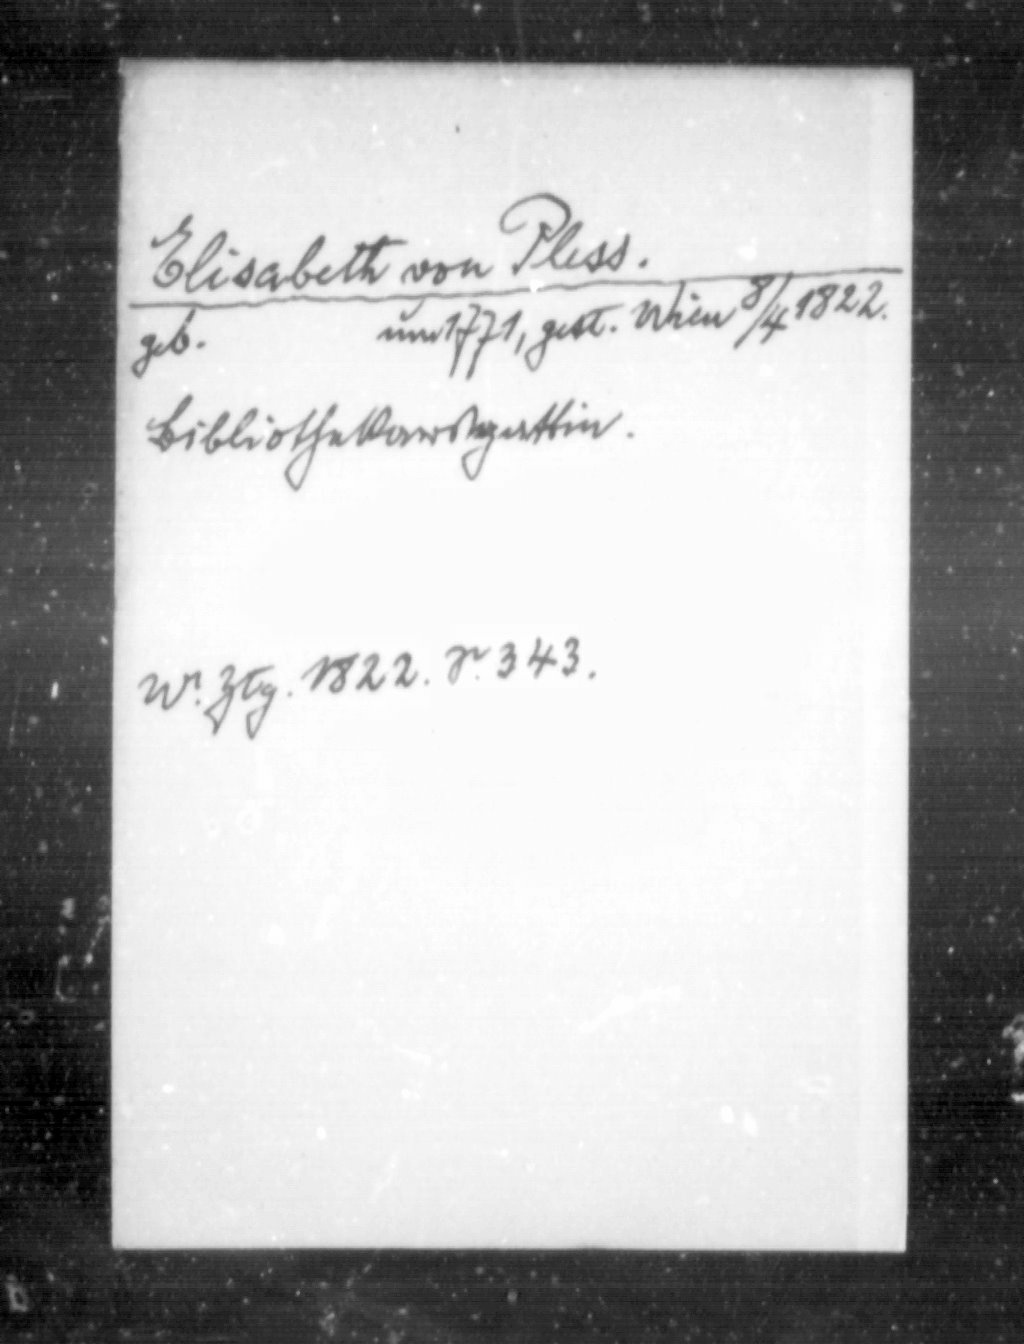 Elisabeth von Pless.
geb. um 1771, gest. Wien 8/4 1822.
Bibliothekarsgattin.
Wr. Ztg. 1822. S. 343.